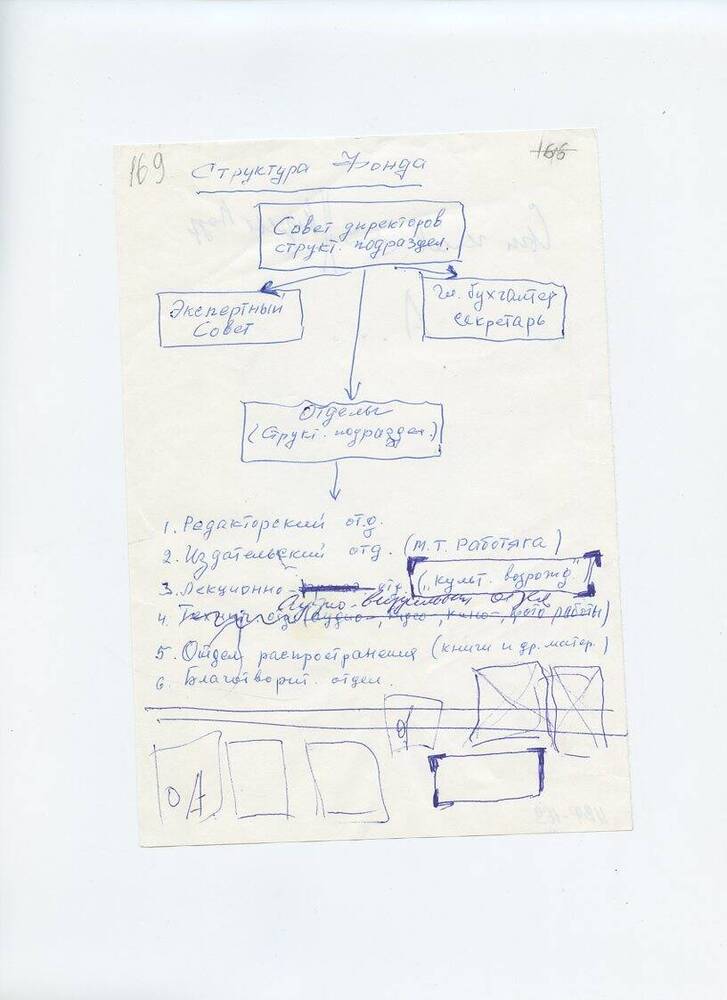 169
166
Структура Фонда
Совет директоров
структ. подраздел.
Экспертный
Совет
Гл. бухгалтер
секретарь
Отделы
(Структ. подраздел.)
1. Редакторский отд.
2. Издательский отд. (М.Т. Работяга)
3. Лекционно- отд. („культ. возрожд")
Аудио-визуальный отдел
4. Технич. отд. (аудио-, видео-, кино-, фото работы)
5. Отдел распространения (книги и др. матер.)
6. Благотворит. отдел.